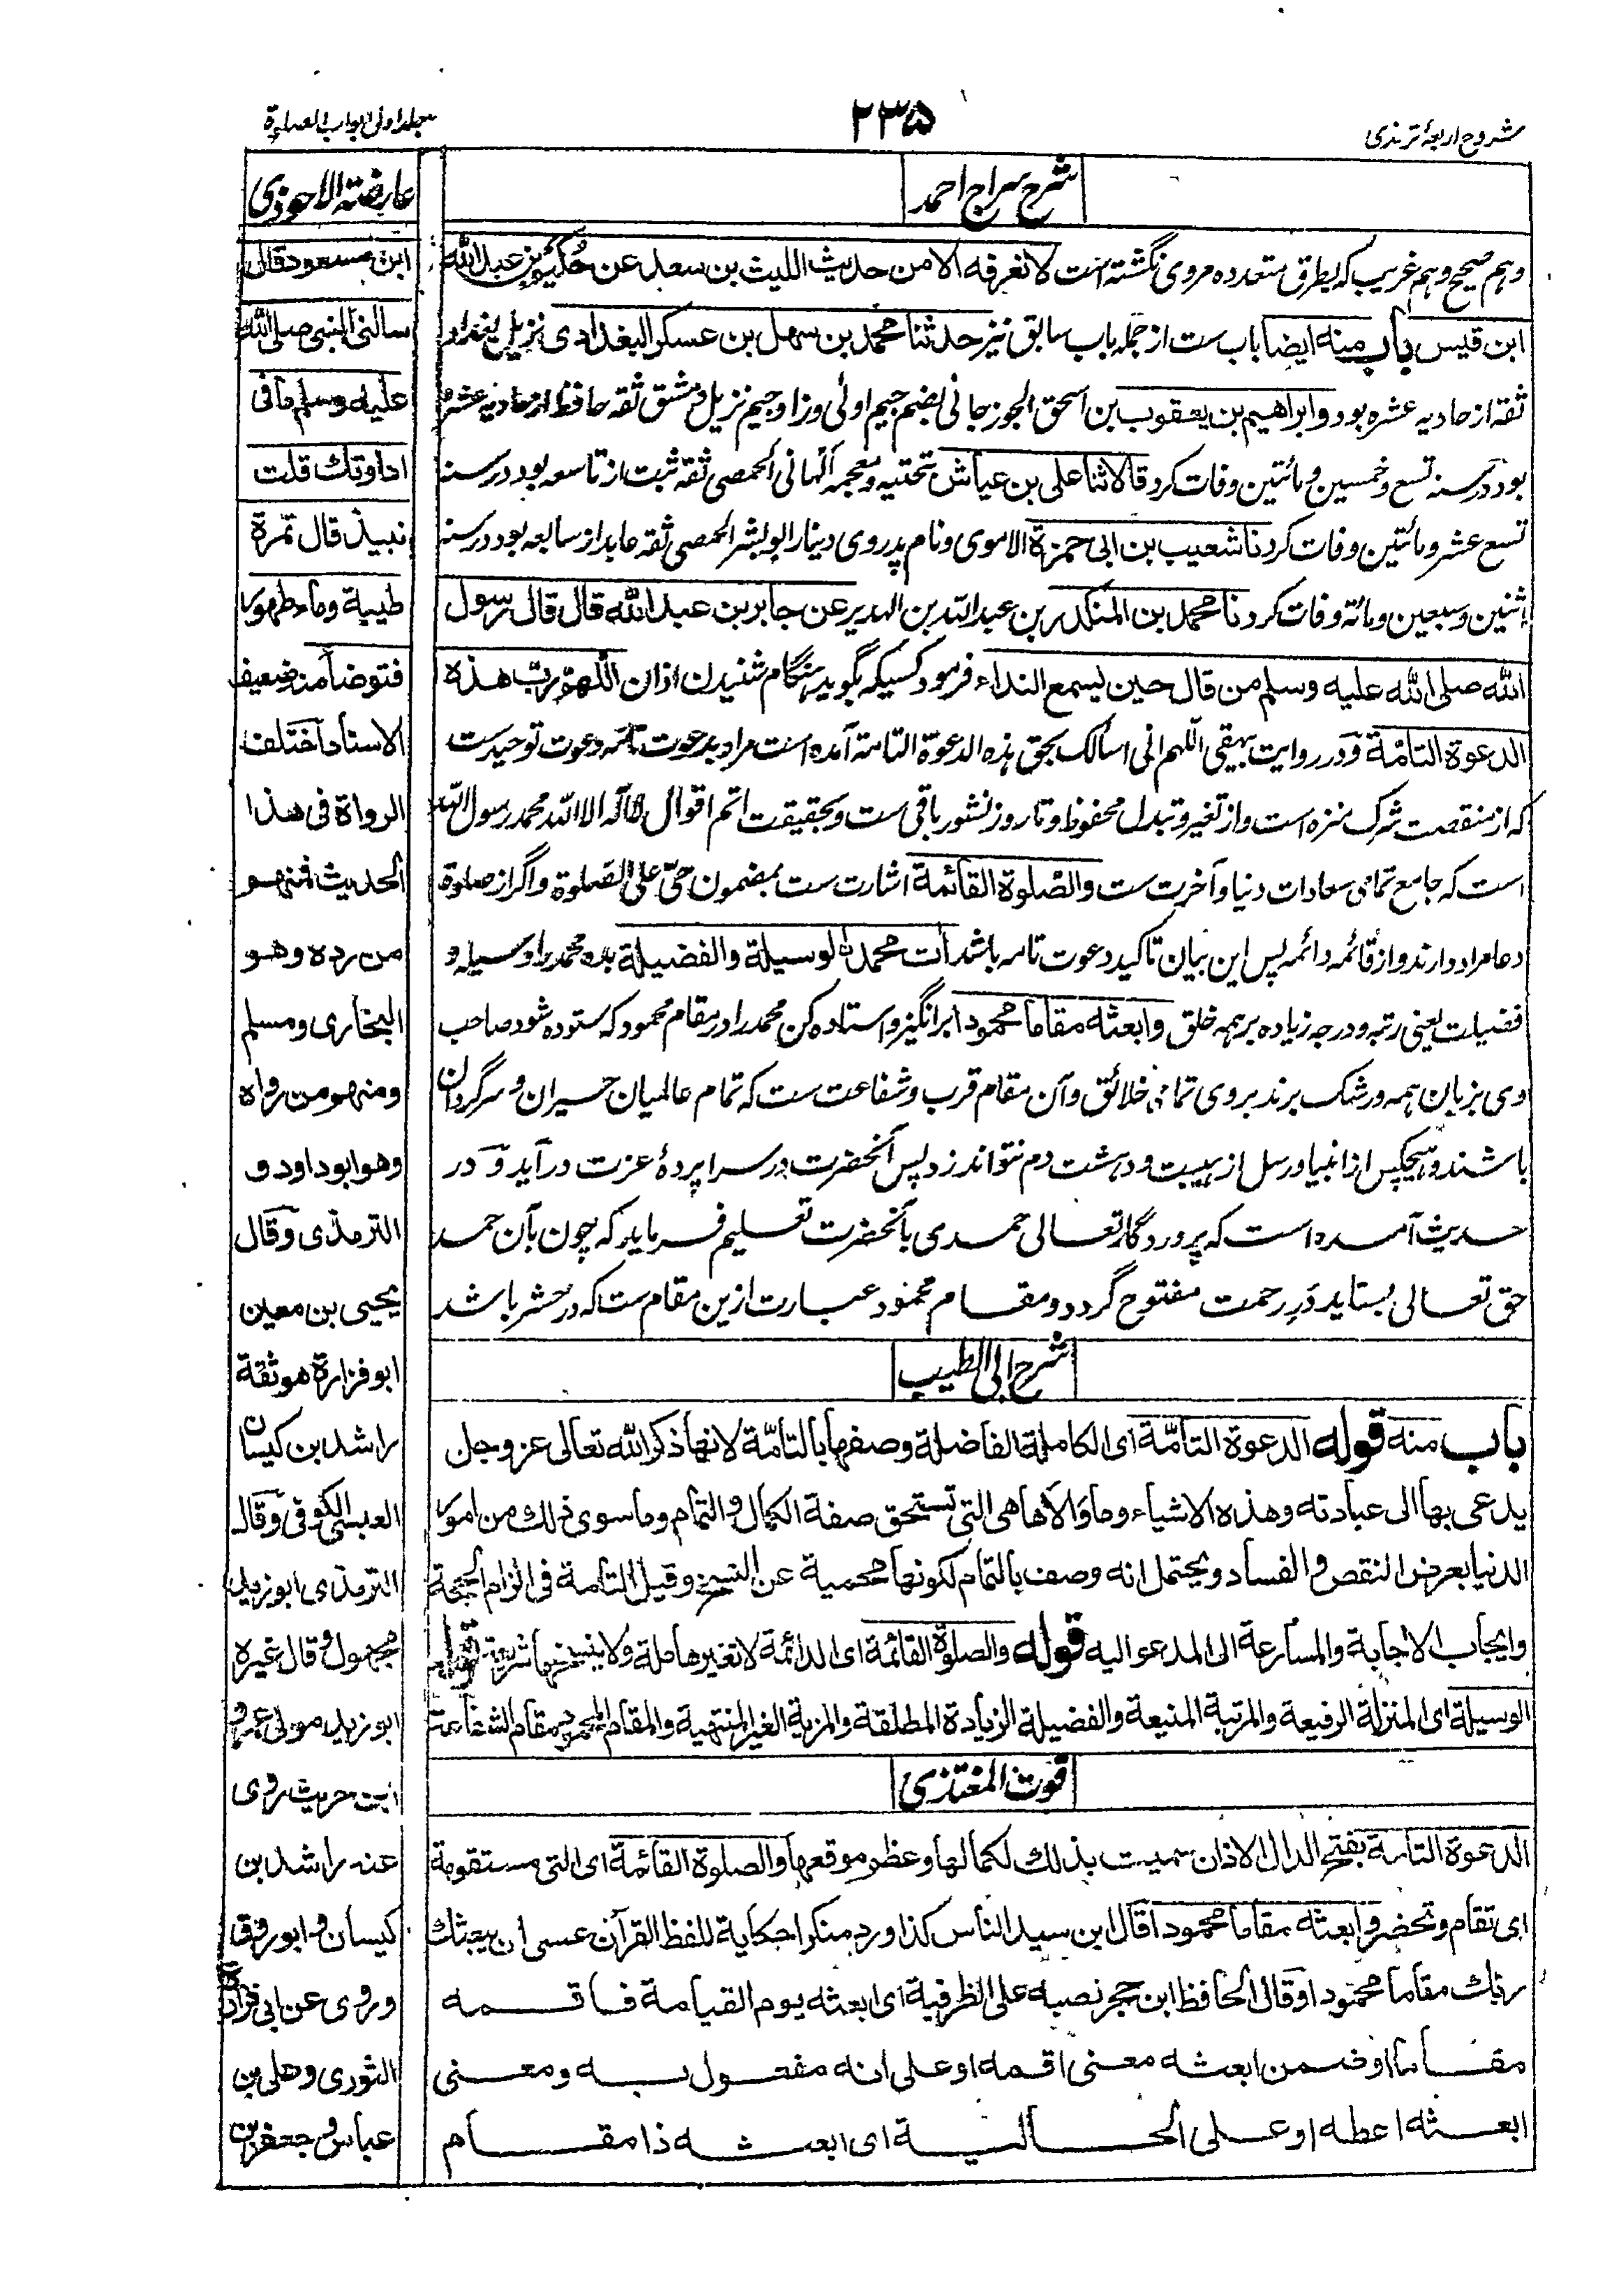 شروح اربعۀ ترمذی
۲۳۵
جلد اولی ابواب الصلوة
شرح سراج احمد
وہم صحیح وہم غریب کہ بطرق متعدده مروی نگشته است لا نعرفه الا من حدیث اللیث بن سعد عن حُکَیم بن عبد الله
ابن قیس باب منه ایضا باب ست از جملہ باب سابق نیز حدثنا محمد بن سهل بن عسکر البغدادی نزیل بغداد
ثقه از حادیه عشره بود و ابراهیم بن یعقوب بن اسحق الجوزجانی بضم جیم اولی وزا وجیم نزیل دمشق ثقه حافظ از حادیه عشره
بود در سنہ تسع وخمسین ومائتین وفات کرد قالا ثنا علی بن عیاش بتحتیه ومعجمه الهانی الحمصی ثقه ثبت از تاسعه بود در سنہ
تسع عشر ومائتین وفات کرد نا شعیب بن ابی حمزة الاموی ونام پدر وی دینار ابو بشر الحمصی ثقه عابد از سابعه بود در سنہ
اثنین وسبعین ومائة وفات کرد نا محمد بن المنکدر بن عبد الله بن الهدیر عن جابر بن عبد الله قال قال رسول
الله صلی الله علیه وسلم من قال حین یسمع النداء فرمود کسیکہ بگوید ہنگام شنیدن اذان اللّهم ربّ هذه
الدعوة التامّة وَدر روایت بیهقی اللّهم انی اسالک بحق ہذه الدعوة التامة آمده است مراد بدعوت تامه دعوت توحید ست
کہ از منقصت شرک منزه است واز تغیر وتبدل محفوظ وتا روز نشور باقی ست وبحقیقت اتم اقوال لا اله الا الله محمد رسول الله
است کہ جامع تمامی سعادات دنیا وآخرت ست والصّلوة القائمة اشارت ست بمضمون حیّ علی الصّلوة واگر از صلوة
دعا مراد دارند واز قائمه دائمه پس این بیان تاکید دعوت تامه باشد اٰت محمداً الوسیلة والفضیلة بده محمد را وسیلہ و
فضیلت یعنی رتبہ ودرجہ زیاده بر ہمہ خلق وابعثه مقاما محمودا برانگیز واستاده کن محمد را در مقام محمود کہ ستوده شود صاحب
وی بزبان ہمہ ورشک برند بروی تمامی خلائق وآن مقام قرب وشفاعت ست کہ تمام عالمیان حیران وسرگردان
باشند وہیچکس از انبیا ورسل از ہیبت ودہشت دم نتواند زد پس آنحضرت در سرا پردۀ عزت درآید وَ در
حدیث آمده است کہ پروردگار تعالی حمدی بآنحضرت تعلیم فرماید کہ چون بآن حمد
حق تعالی بستاید دَرِ رحمت مفتوح گردد ومقام محمود عبارت ازین مقام ست کہ در حشر باشد
شرح ابی الطیب
باب منه قوله الدعوة التامّة ای الکاملة الفاضلة وصفها بالتامّة لانها ذکر الله تعالی عز وجل
یدعی بها الی عبادته وهذه الاشیاء وما والاها هی التی تستحق صفة الکمال والتمام وما سوی ذلك من امور
الدنیا بعرض النقص والفساد ویحتمل انه وصف بالتمام لکونها محمیة عن النسخ وقیل التامة فی الزام الحجة
وایجاب الاجابة والمسارعة الی المدعو الیه قوله والصلوة القائمة ای الدائمة لا تغیرها ملة ولا ینسخها شریعة قوله
الوسیلة ای المنزلة الرفیعة والمرتبة المنیعة والفضیلة الزیادة المطلقة والمزیة الغیر المنتهیة والمقام المحمود مقام الشفاعة
قوت المغتذی
الدعوة التامة بفتح الدال الاذان سمیت بذلك لکمالها وعظم موقعها والصلوة القائمة ای التی ستقوم
ای تقام وتحضر وابعثه مقاما محمودا قال ابن سید الناس کذا ورد منکرا حکایة للفظ القرآن عسی ان یبعثك
ربك مقاما محمودا وقال الحافظ ابن حجر نصبه علی الظرفیة ای ابعثه یوم القیامة فاقمه
مقاما او ضمن ابعثه معنی اقمه او علی انه مفعول به ومعنی
ابعثه اعطه او علی الحالیة ای ابعثه ذا مقام
عارضة الاحوذی
ابن مسعود قال
سالنی النبی صلی الله
علیه وسلم ما فی
اداوتك قلت
نبیذ قال تمرة
طیبة وماء طهور
فتوضأ منه ضعیف
الاسناد اختلف
الرواة فی هذا
الحدیث فمنهم
من رده وهو
البخاری ومسلم
ومنهم من رواه
وهو ابو داود و
الترمذی وقال
یحیی بن معین
ابو فزارة هو ثقة
راشد بن کیسان
العبسی الکوفی وقال
الترمذی ابو زید
مجهول وقال غیره
ابو زید مولی عمرو
ابن حریث روی
عنه راشد بن
کیسان وابو روق
وروی عن ابی فزارة
الثوری وعلی بن
عباس وجعفر بن